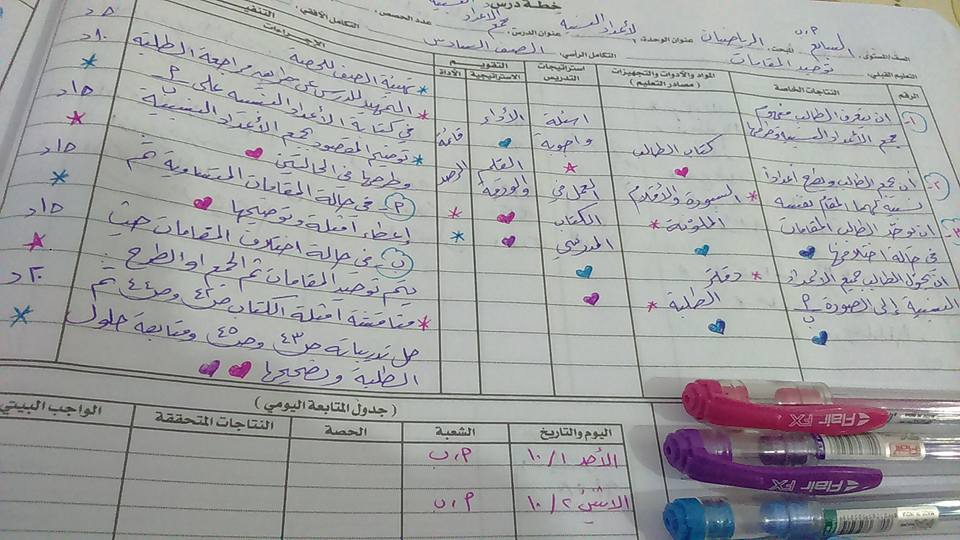 خطة درس
الصف/المستوى: السابع أ، ب المبحث: الرياضيات عنوان الوحدة: الأعداد النسبية عنوان الدرس: جمع الأعداد النسبية عدد الحصص:
التعلم القبلي: توحيد المقامات التكامل الرأسي: الصف السادس التكامل الأفقي:
الرقم
النتاجات الخاصة
المواد والأدوات والتجهيزات
(مصادر التعليم)
استراتيجيات
التدريس
التقويم
الاستراتيجية
الأداة
التنفيذ
الإجراءات
١-
ان يتعرف الطالب مفهوم
جمع الأعداد النسبية وطرحها
٢-
أن يجمع الطالب ويطرح أعداداً
نسبية لهما المقام نفسه
٣-
ان يوحد الطالب المقامات
في حالة اختلافها
ان يحول الطالب جميع الأعداد
النسبية إلى الصورة أ/ب
كتاب الطالب
السبورة والأقلام
الملونة
دفتر
الطلبة
اسئلة
واجوبة
العمل في
الكتاب
المدرسي
الأداء
القلم
والورقة
قائمة
الرصد
تهيئة الصف للحصة
التمهيد للدرس عن طريق مراجعة الطلبة
في كتابة الأعداد النسبية على أ/ب
توضيح المقصود بجمع الأعداد النسبية
وطرحها في الحالتين
أ في حالة المقامات المتساوية ثم
إعطاء أمثلة وتوضيحها
ب في حالة اختلاف المقامات حيث
يتم توحيد المقامات ثم الجمع او الطرح
مناقشة امثلة الكتاب ص٤٣ وص٤٤ ثم
حل تدريبات ص٤٣ وص٤٥ ومتابعة حلول
الطلبة وتصحيحها
٥د
١٠د
١٥د
١٥د
١٥د
٢٠د
( جدول المتابعة اليومي )
اليوم والتاريخ الشعبة الحصة النتاجات المتحققة الواجب البيتي
الأحد ١٠/١ أ، ب
الاثنين ١٠/٢ أ، ب
Flair FX
Flair FX